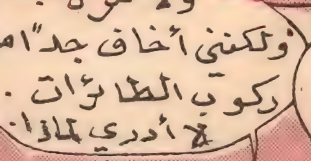 ولكنني أخاف جدًا من
ركوب الطائرات .
لا أدري لماذا .